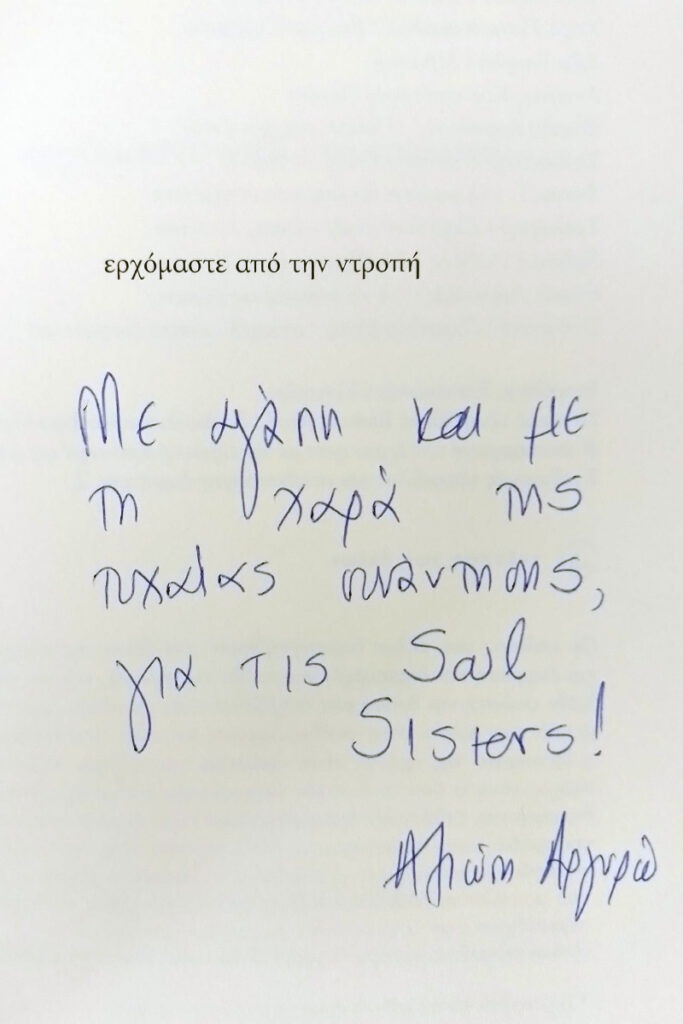 ερχόμαστε από την ντροπή
Με αγάπη και με
τη χαρά της
τυχαίας συνάντησης,
για τις Soul
Sisters!
Αξιώτη Αργυρώ